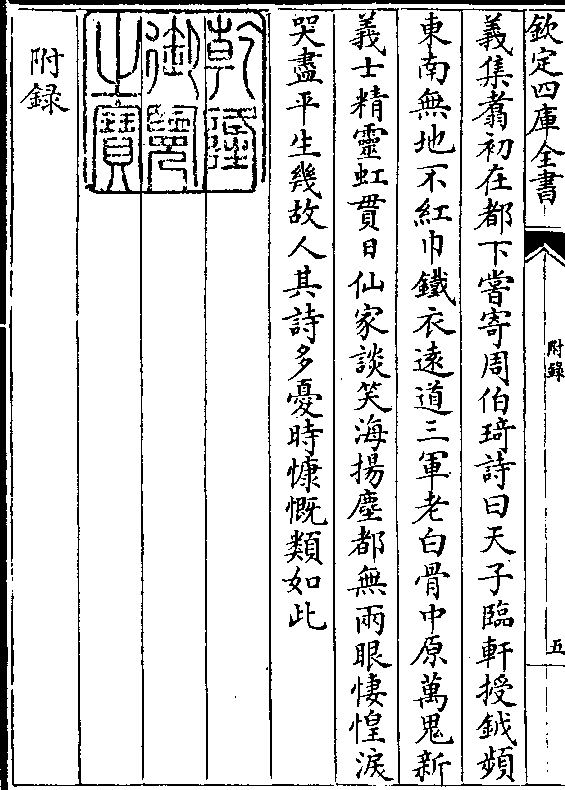 欽定四庫全書
附錄
五
義集翥初在都下嘗寄周伯琦詩曰天子臨軒授鉞頻
東南無地不紅巾鐵衣遠道三軍老白骨中原萬鬼新
義士精靈虹貫日仙家談笑海揚塵都無兩眼悽惶淚
哭盡平生幾故人其詩多憂時慷慨類如此
乾隆
御覽
之寶
附録